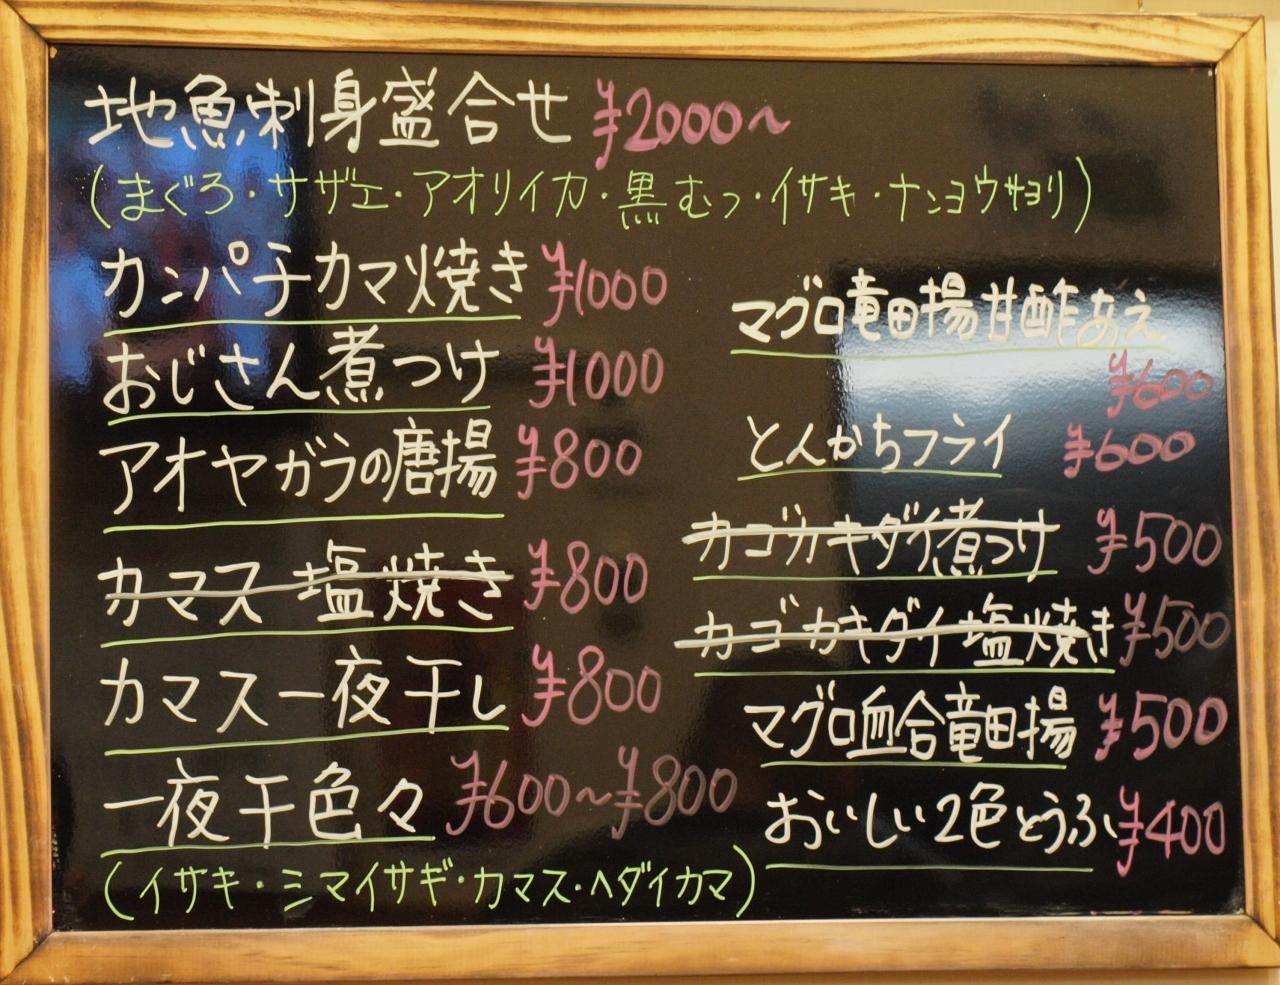 地魚刺身盛合せ ¥2000〜
(まぐろ・サザエ・アオリイカ・黒むつ・イサキ・ナンヨウサヨリ)
カンパチカマ焼き ¥1000
おじさん煮つけ ¥1000
アオヤガラの唐揚 ¥800
カマス 塩焼き ¥800
カマス一夜干し ¥800
一夜干色々 ¥600〜¥800
(イサキ・シマイサギ・カマス・ヘダイカマ)
マグロ竜田揚甘酢あえ
¥600
とんかちフライ ¥600
カゴカキダイ煮つけ ¥500
カゴカキダイ塩焼き ¥500
マグロ血合竜田揚 ¥500
おいしい2色とうふ ¥400